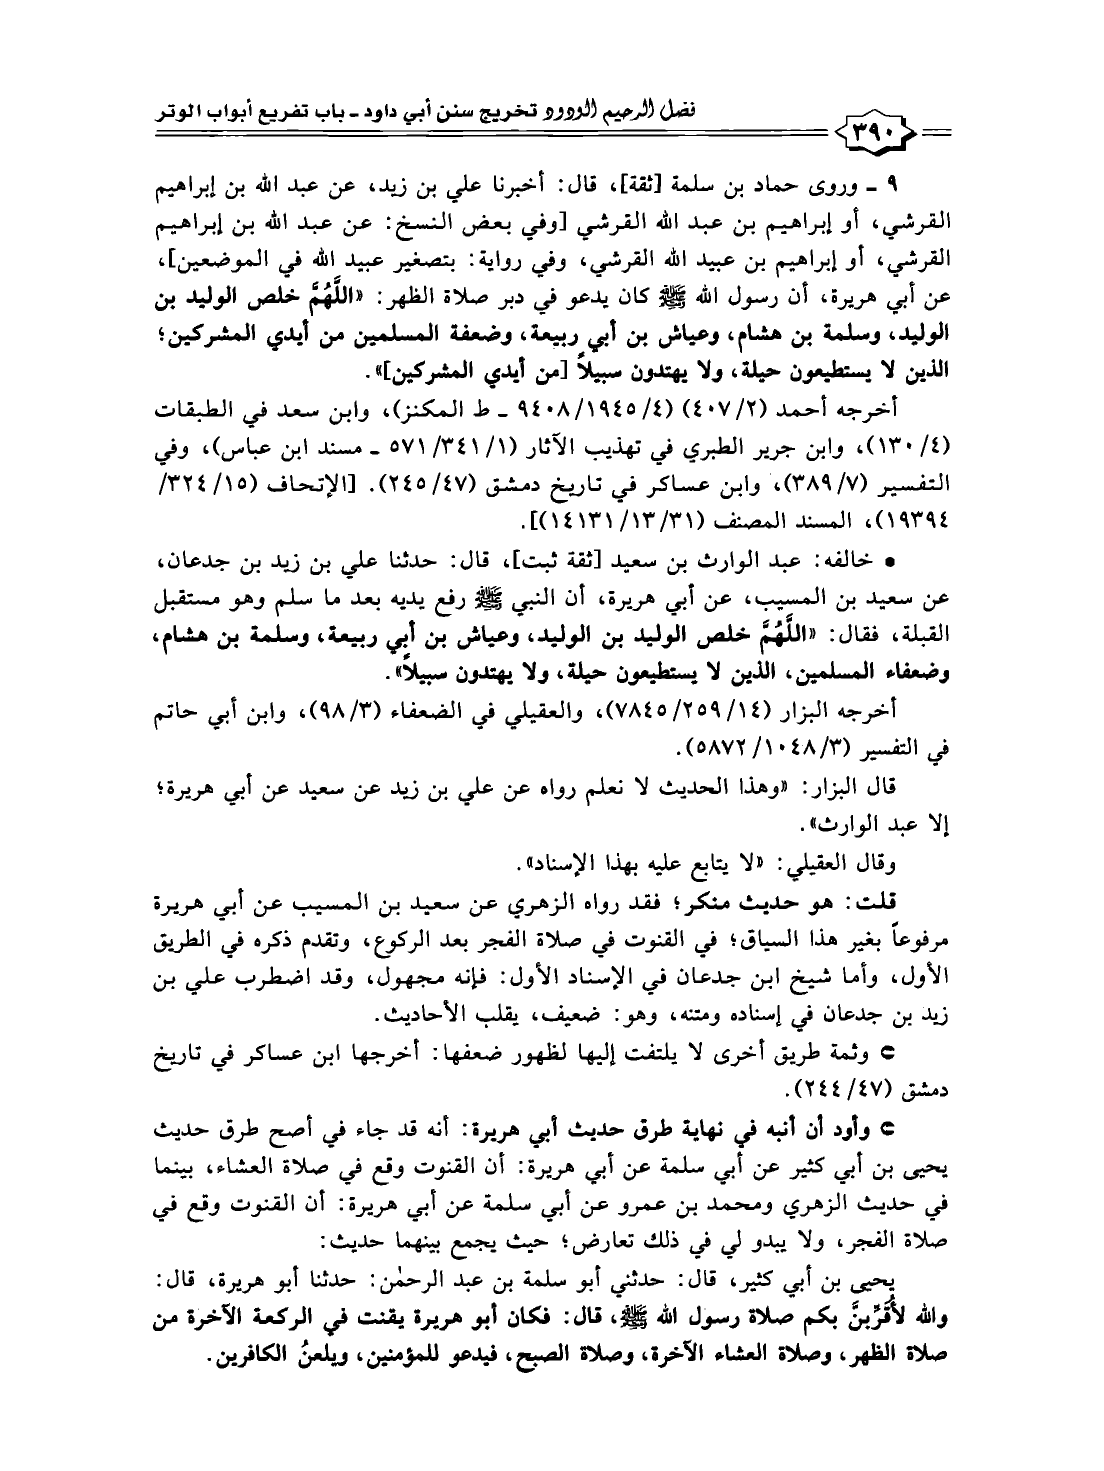 فضل الرحيم الودود تخريج سنن أبي داود - باب تفريع أبواب الوتر
٣٩٠
٩ - وروى حماد بن سلمة [ثقة]، قال: أخبرنا علي بن زيد، عن عبد الله بن إبراهيم
القرشي، أو إبراهيم بن عبد الله القرشي [وفي بعض النسخ: عن عبد الله بن إبراهيم
القرشي، أو إبراهيم بن عبيد الله القرشي، وفي رواية: بتصغير عبيد الله في الموضعين]،
عن أبي هريرة، أن رسول الله ﷺ كان يدعو في دبر صلاة الظهر: «اللَّهُمَّ خلص الوليد بن
الوليد، وسلمة بن هشام، وعياش بن أبي ربيعة، وضعفة المسلمين من أيدي المشركين؛
الذين لا يستطيعون حيلة، ولا يهتدون سبيلاً [من أيدي المشركين]».
أخرجه أحمد (٤٠٧/٢) (٩٤٠٨/١٩٤٥/٤ - ط المكنز)، وابن سعد في الطبقات
(١٣٠/٤)، وابن جرير الطبري في تهذيب الآثار (٥٧١/٣٤١/١ - مسند ابن عباس)، وفي
التفسير (٣٨٩/٧)، وابن عساكر في تاريخ دمشق (٢٤٥/٤٧). [الإتحاف (٣٢٤/١٥/
١٩٣٩٤)، المسند المصنف (١٤١٣١/١٣/٣١)].
• خالفه: عبد الوارث بن سعيد [ثقة ثبت]، قال: حدثنا علي بن زيد بن جدعان،
عن سعيد بن المسيب، عن أبي هريرة، أن النبي ﷺ رفع يديه بعد ما سلم وهو مستقبل
القبلة، فقال: «اللَّهُمَّ خلص الوليد بن الوليد، وعياش بن أبي ربيعة، وسلمة بن هشام،
وضعفاء المسلمين، الذين لا يستطيعون حيلة، ولا يهتدون سبيلاً».
أخرجه البزار (٧٨٤٥/٢٥٩/١٤)، والعقيلي في الضعفاء (٩٨/٣)، وابن أبي حاتم
في التفسير (٥٨٧٢/١٠٤٨/٣).
قال البزار: «وهذا الحديث لا نعلم رواه عن علي بن زيد عن سعيد عن أبي هريرة؛
إلا عبد الوارث».
وقال العقيلي: «لا يتابع عليه بهذا الإسناد».
قلت: هو حديث منكر؛ فقد رواه الزهري عن سعيد بن المسيب عن أبي هريرة
مرفوعاً بغير هذا السياق؛ في القنوت في صلاة الفجر بعد الركوع، وتقدم ذكره في الطريق
الأول، وأما شيخ ابن جدعان في الإسناد الأول: فإنه مجهول، وقد اضطرب علي بن
زيد بن جدعان في إسناده ومتنه، وهو: ضعيف، يقلب الأحاديث.
⊂ وثمة طريق أخرى لا يلتفت إليها لظهور ضعفها: أخرجها ابن عساكر في تاريخ
دمشق (٢٤٤/٤٧).
⊂ وأود أن أنبه في نهاية طرق حديث أبي هريرة: أنه قد جاء في أصح طرق حديث
يحيى بن أبي كثير عن أبي سلمة عن أبي هريرة: أن القنوت وقع في صلاة العشاء، بينما
في حديث الزهري ومحمد بن عمرو عن أبي سلمة عن أبي هريرة: أن القنوت وقع في
صلاة الفجر، ولا يبدو لي في ذلك تعارض؛ حيث يجمع بينهما حديث:
يحيى بن أبي كثير، قال: حدثني أبو سلمة بن عبد الرحمٰن: حدثنا أبو هريرة، قال:
والله لأُقَرِّبنَّ بكم صلاة رسول الله ﷺ، قال: فكان أبو هريرة يقنت في الركعة الآخرة من
صلاة الظهر، وصلاة العشاء الآخرة، وصلاة الصبح، فيدعو للمؤمنين، ويلعنُ الكافرين.